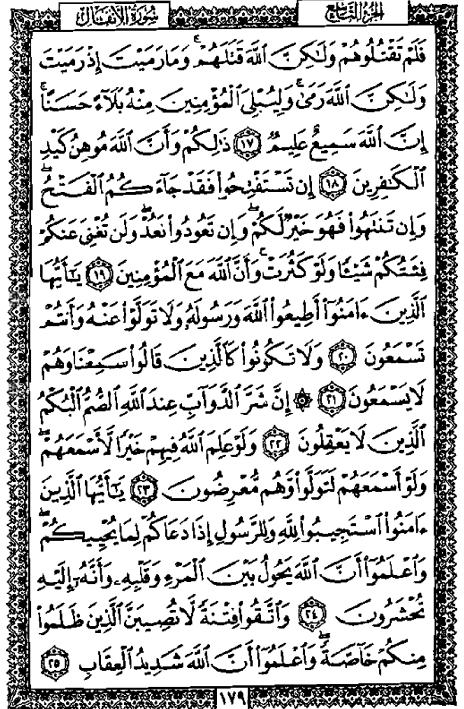 سُورَةُ الأَنفَالِ الجُزْءُ التَّاسِعُ
فَلَمْ تَقْتُلُوهُمْ وَلَٰكِنَّ ٱللَّهَ قَتَلَهُمْ ۚ وَمَا رَمَيْتَ إِذْ رَمَيْتَ
وَلَٰكِنَّ ٱللَّهَ رَمَىٰ ۚ وَلِيُبْلِيَ ٱلْمُؤْمِنِينَ مِنْهُ بَلَآءً حَسَنًا ۚ
إِنَّ ٱللَّهَ سَمِيعٌ عَلِيمٌ ﴿١٧﴾ ذَٰلِكُمْ وَأَنَّ ٱللَّهَ مُوهِنُ كَيْدِ
ٱلْكَٰفِرِينَ ﴿١٨﴾ إِن تَسْتَفْتِحُوا۟ فَقَدْ جَآءَكُمُ ٱلْفَتْحُ ۖ
وَإِن تَنتَهُوا۟ فَهُوَ خَيْرٌ لَّكُمْ ۖ وَإِن تَعُودُوا۟ نَعُدْ وَلَن تُغْنِىَ عَنكُمْ
فِئَتُكُمْ شَيْـًٔا وَلَوْ كَثُرَتْ وَأَنَّ ٱللَّهَ مَعَ ٱلْمُؤْمِنِينَ ﴿١٩﴾ يَٰٓأَيُّهَا
ٱلَّذِينَ ءَامَنُوٓا۟ أَطِيعُوا۟ ٱللَّهَ وَرَسُولَهُۥ وَلَا تَوَلَّوْا۟ عَنْهُ وَأَنتُمْ
تَسْمَعُونَ ﴿٢٠﴾ وَلَا تَكُونُوا۟ كَٱلَّذِينَ قَالُوا۟ سَمِعْنَا وَهُمْ
لَا يَسْمَعُونَ ﴿٢١﴾ ۞ إِنَّ شَرَّ ٱلدَّوَآبِّ عِندَ ٱللَّهِ ٱلصُّمُّ ٱلْبُكْمُ
ٱلَّذِينَ لَا يَعْقِلُونَ ﴿٢٢﴾ وَلَوْ عَلِمَ ٱللَّهُ فِيهِمْ خَيْرًا لَّأَسْمَعَهُمْ ۖ
وَلَوْ أَسْمَعَهُمْ لَتَوَلَّوا۟ وَّهُم مُّعْرِضُونَ ﴿٢٣﴾ يَٰٓأَيُّهَا ٱلَّذِينَ
ءَامَنُوا۟ ٱسْتَجِيبُوا۟ لِلَّهِ وَلِلرَّسُولِ إِذَا دَعَاكُمْ لِمَا يُحْيِيكُمْ ۖ
وَٱعْلَمُوٓا۟ أَنَّ ٱللَّهَ يَحُولُ بَيْنَ ٱلْمَرْءِ وَقَلْبِهِۦ وَأَنَّهُۥٓ إِلَيْهِ
تُحْشَرُونَ ﴿٢٤﴾ وَٱتَّقُوا۟ فِتْنَةً لَّا تُصِيبَنَّ ٱلَّذِينَ ظَلَمُوا۟
مِنكُمْ خَآصَّةً ۖ وَٱعْلَمُوٓا۟ أَنَّ ٱللَّهَ شَدِيدُ ٱلْعِقَابِ ﴿٢٥﴾
١٧٩